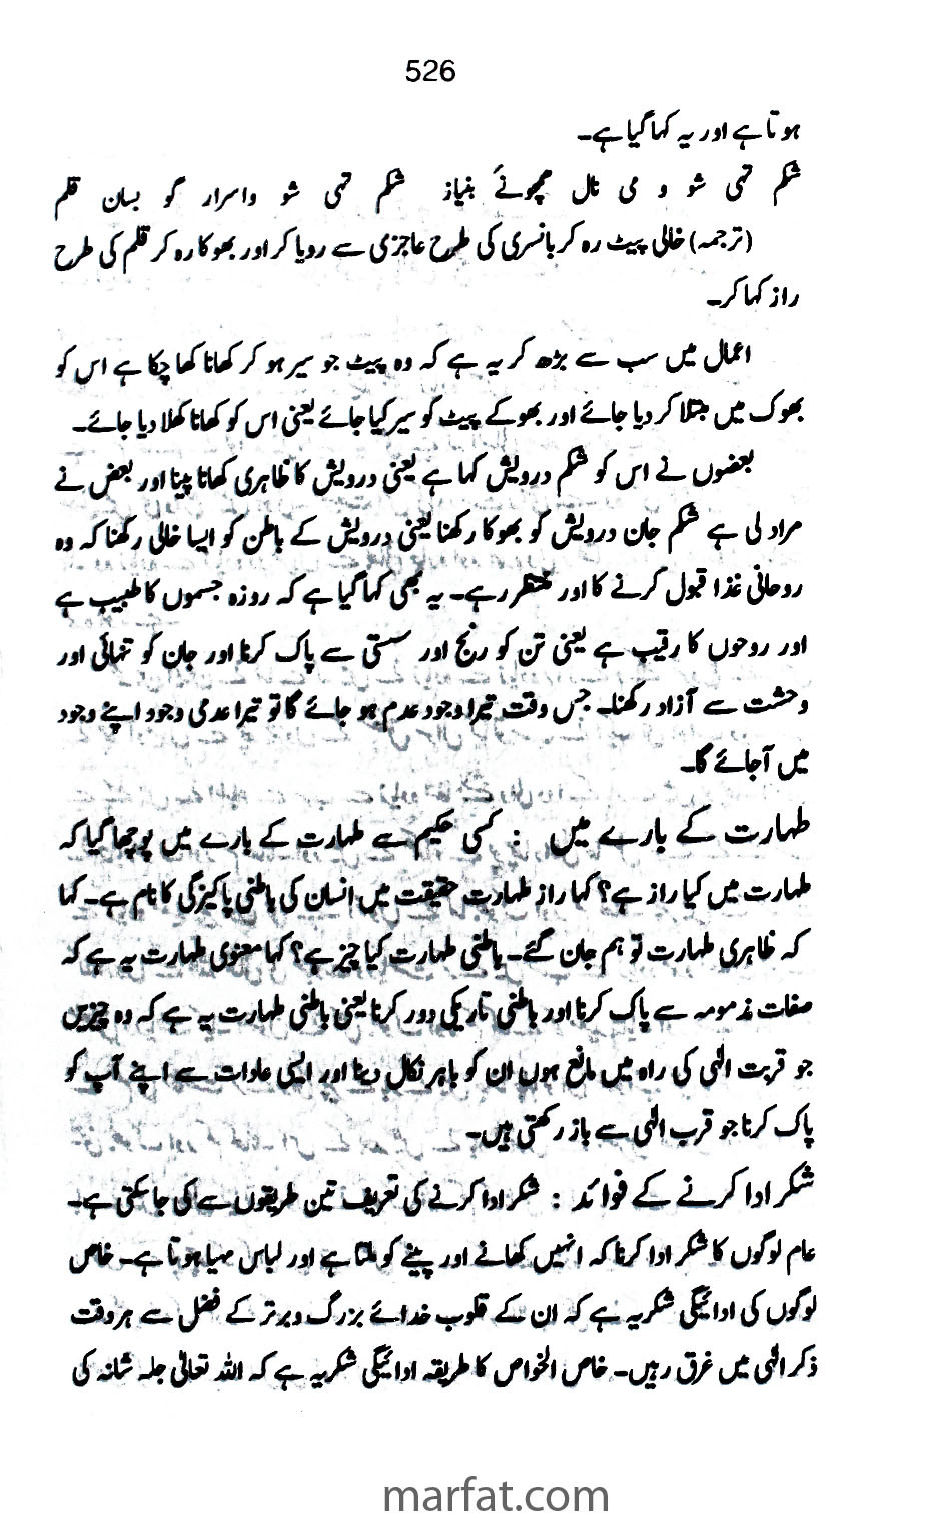 526
ہوتا ہے اور یہ کہا گیا ہے۔
شکم تہی شو و می نال ہمچو نے بنیاز شکم تہی شو واسرار گو بسان قلم
(ترجمہ) خالی پیٹ رہ کر بانسری کی طرح عاجزی سے رویا کر اور بھوکا رہ کر قلم کی طرح
راز کہا کر۔
اعمال میں سب سے بڑھ کر یہ ہے کہ وہ پیٹ جو سیر ہو کر کھانا کھا چکا ہے اس کو
بھوک میں مبتلا کر دیا جائے اور بھوکے پیٹ کو سیر کیا جائے یعنی اس کو کھانا کھلا دیا جائے۔
بعضوں نے اس کو شکم درویش کہا ہے یعنی درویش کا ظاہری کھانا پینا اور بعض نے
مراد لی ہے شکم جان درویش کو بھوکا رکھنا یعنی درویش کے باطن کو ایسا خالی رکھنا کہ وہ
روحانی غذا قبول کرنے کا اور منتظر رہے۔ یہ بھی کہا گیا ہے کہ روزہ جسموں کا طبیب ہے
اور روحوں کا رقیب ہے یعنی تن کو رنج اور سستی سے پاک کرنا اور جان کو تنہائی اور
وحشت سے آزاد رکھنا۔ جس وقت تیرا وجود عدم ہو جائے گا تو تیرا عدمی وجود اپنے وجود
میں آجائے گا۔
طہارت کے بارے میں : کسی حکیم سے طہارت کے بارے میں پوچھا گیا کہ
طہارت میں کیا راز ہے؟ کہا راز طہارت حقیقت میں انسان کی باطنی پاکیزگی کا نام ہے۔ کہا
کہ ظاہری طہارت تو ہم جان گئے۔ باطنی طہارت کیا چیز ہے؟ کہا معنوی طہارت یہ ہے کہ
صفات مذمومہ سے پاک کرنا اور باطنی تاریکی دور کرنا یعنی باطنی طہارت یہ ہے کہ وہ چیزیں
جو قربت الٰہی کی راہ میں مانع ہوں ان کو باہر نکال دینا اور ایسی عادات سے اپنے آپ کو
پاک کرنا جو قرب الٰہی سے باز رکھتی ہیں۔
شکر ادا کرنے کے فوائد : شکر ادا کرنے کی تعریف تین طریقوں سے کی جاسکتی ہے۔
عام لوگوں کا شکر ادا کرنا کہ انہیں کھانے اور پینے کو ملتا ہے اور لباس مہیا ہوتا ہے۔ خاص
لوگوں کی ادائیگی شکریہ ہے کہ ان کے قلوب خدائے بزرگ و برتر کے فضل سے ہر وقت
ذکر الٰہی میں غرق رہیں۔ خاص الخواص کا طریقہ ادائیگی شکریہ ہے کہ اللہ تعالیٰ جلہ شانہ کی
marfat.com